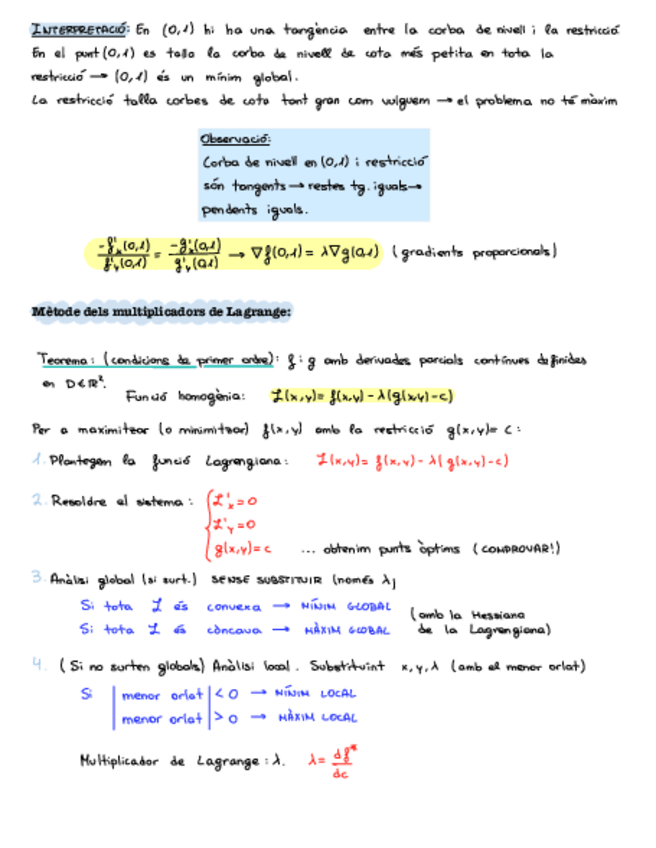 INTERPRETACIÓ: En (0,1) hi ha una tangència entre la corba de nivell i la restricció
En el punt (0,1) es talla la corba de nivell de cota més petita en tota la
restricció → (0,1) és un mínim global.
La restricció talla corbes de cota tant gran com vulguem → el problema no té màxim
Observació:
Corba de nivell en (0,1) i restricció
són tangents → restes tg. iguals →
pendents iguals.
-f'x(0,1)/f'y(0,1) = -g'x(0,1)/g'y(0,1) → ∇f(0,1) = λ∇g(0,1) (gradients proporcionals)
Mètode dels multiplicadors de Lagrange:
Teorema: (condicions de primer ordre): f i g amb derivades parcials contínues definides
en D∈ℝ².
Funció homogènia: L(x,y)= f(x,y) - λ(g(x,y)-c)
Per a maximitzar (o minimitzar) f(x,y) amb la restricció g(x,y)= c:
1. Plantegem la funció Lagrangiana: L(x,y)= f(x,y) - λ(g(x,y)-c)
2. Resoldre el sistema: { L'x = 0
L'y = 0
g(x,y)=c ... obtenim punts òptims (COMPROVAR!)
3. Anàlisi global (si surt.) SENSE SUBSTITUIR (només λ)
Si tota L és convexa → MÍNIM GLOBAL (amb la Hessiana
Si tota L és còncava → MÀXIM GLOBAL de la Lagrangiana)
4. (Si no surten globals) Anàlisi local. Substituint x,y,λ (amb el menor orlat)
Si |menor orlat| < 0 → MÍNIM LOCAL
|menor orlat| > 0 → MÀXIM LOCAL
Multiplicador de Lagrange: λ. λ= df*/dc